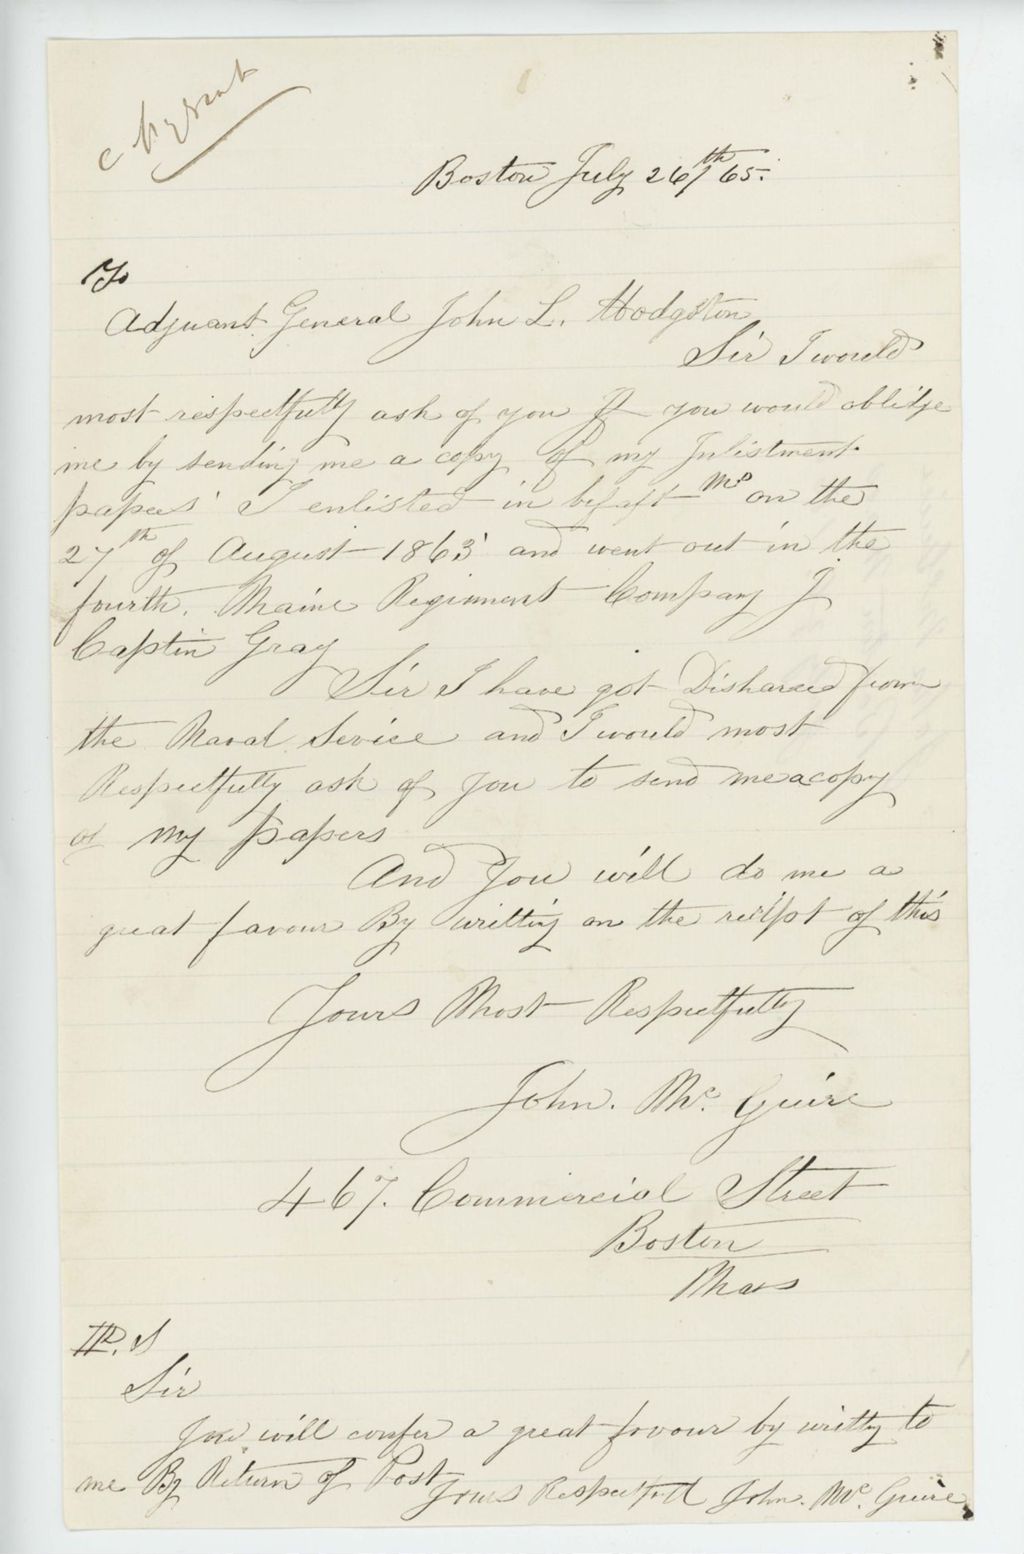 Boston July 26th/65.
To
Adjuant General John L. Hodgston
Sir I would
most respectfully ask of you If you would oblidge
me by sending me a copy of my Inlistment
papers I enlisted in belfast Me on the
27th of August 1863 and went out in the
fourth. Maine Regimment Company J
Captin Gray
Sir I have got Disharced from
the Naval Service and I would most
Respectfully ask of you to send me a copy
of my papers
And You will do me a
great favour By writting on the reciept of this
Yours Most Respectfully
John. Mc. Guire
467. Commercial Street
Boston
Mass
P. S
Sir
You will confer a great favour by writty to
me By Return of Post
Yours Respectfull John. Mc. Guire